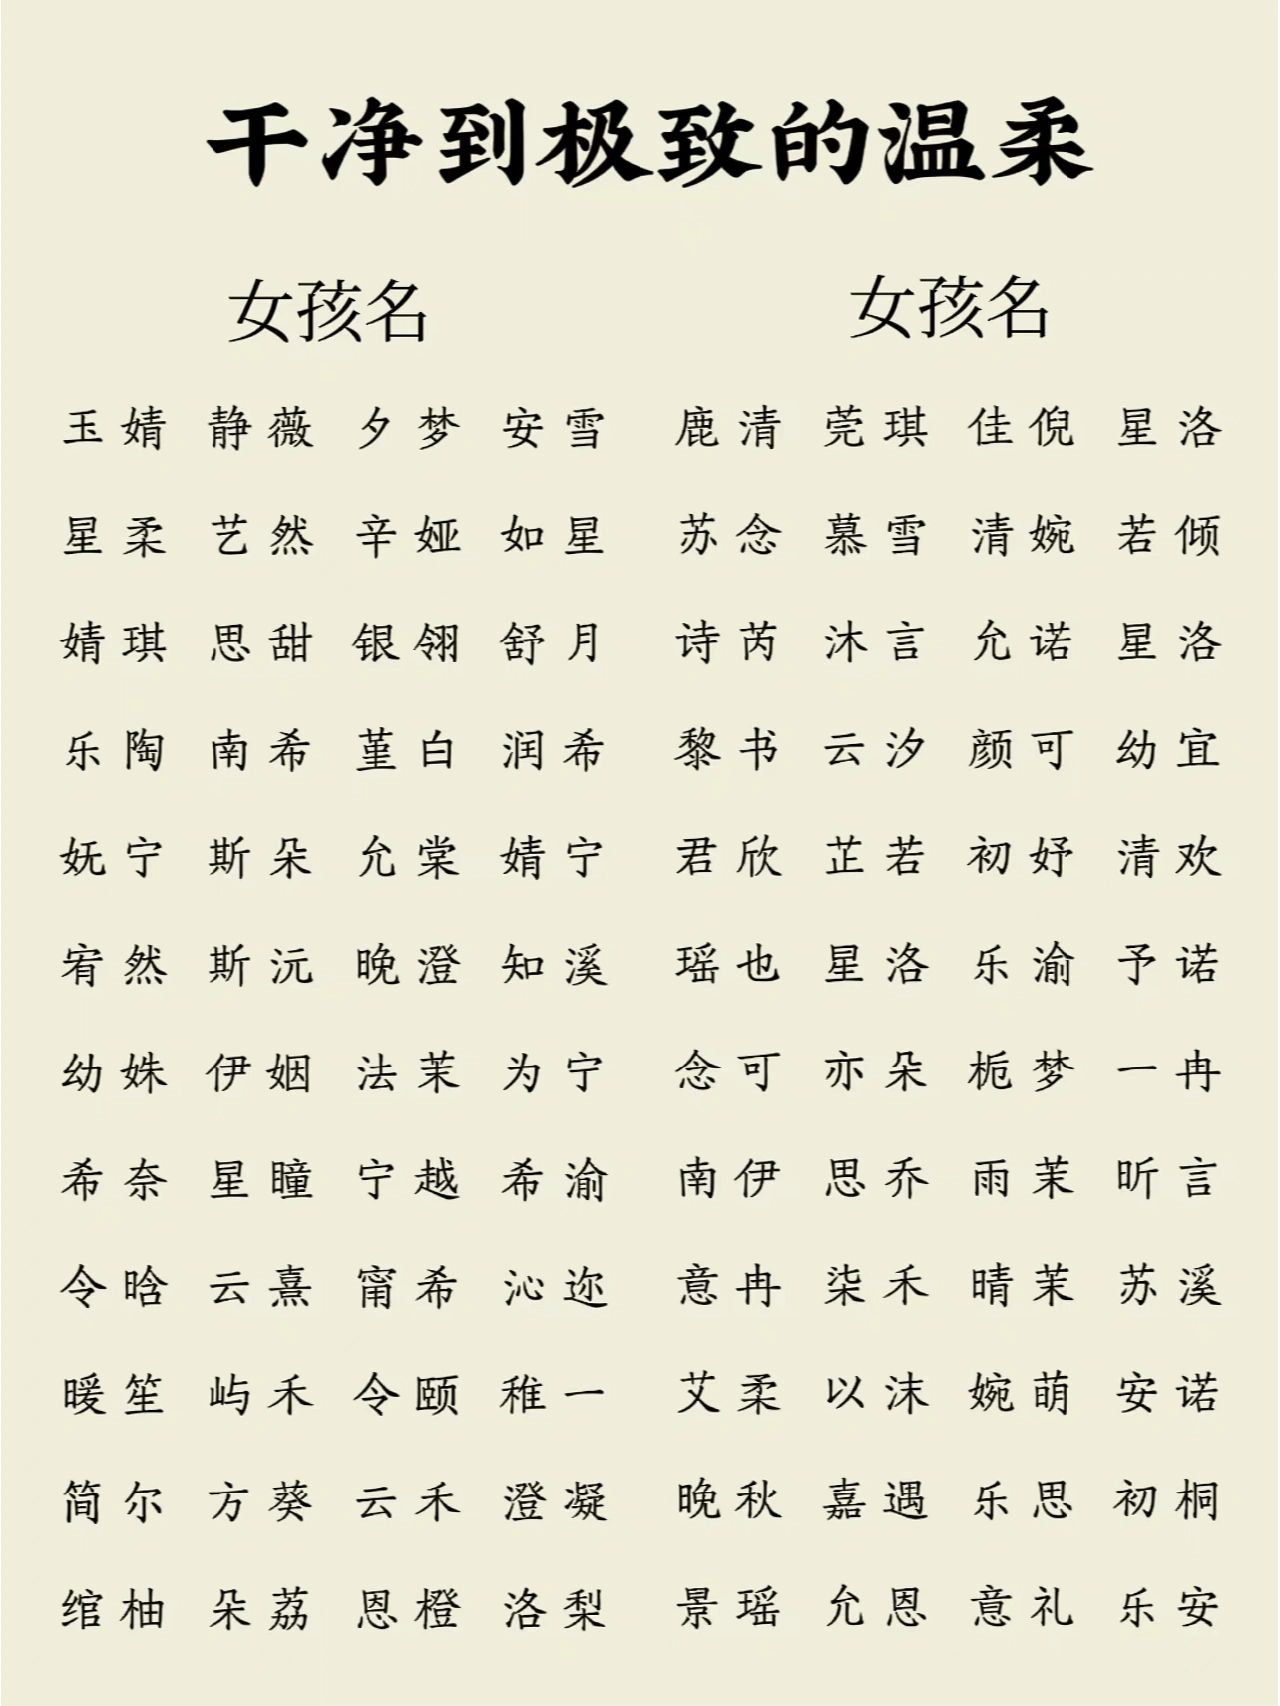 干净到极致的温柔
女孩名 女孩名
玉婧 静薇 夕梦 安雪 鹿清 莞琪 佳倪 星洛
星柔 艺然 辛娅 如星 苏念 慕雪 清婉 若倾
婧琪 思甜 银翎 舒月 诗芮 沐言 允诺 星洛
乐陶 南希 堇白 润希 黎书 云汐 颜可 幼宜
妩宁 斯朵 允棠 婧宁 君欣 芷若 初妤 清欢
宥然 斯沅 晚澄 知溪 瑶也 星洛 乐渝 予诺
幼姝 伊姻 法茉 为宁 念可 亦朵 栀梦 一冉
希奈 星瞳 宁越 希渝 南伊 思乔 雨茉 昕言
令晗 云熹 甯希 沁迩 意冉 柒禾 晴茉 苏溪
暖笙 屿禾 令颐 稚一 艾柔 以沫 婉萌 安诺
简尔 方葵 云禾 澄凝 晚秋 嘉遇 乐思 初桐
绾柚 朵荔 恩橙 洛梨 景瑶 允恩 意礼 乐安